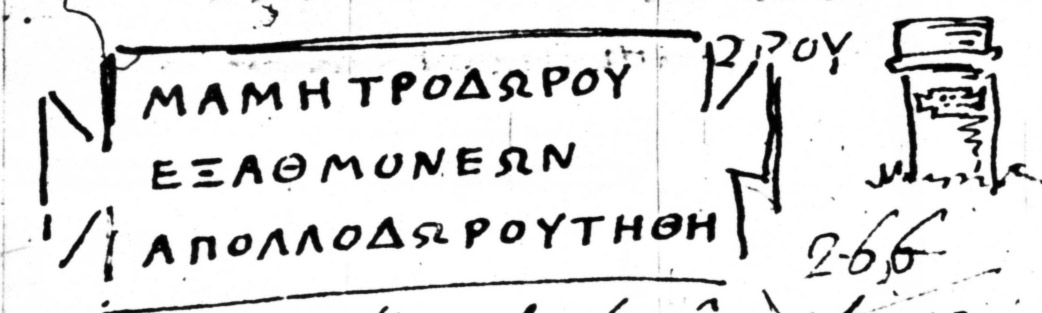 ΜΑΜΗΤΡΟΔΩΡΟΥ
ΕΞΑΘΜΟΝΕΩΝ
ΑΠΟΛΛΟΔΩΡΟΥΤΗΘΗ